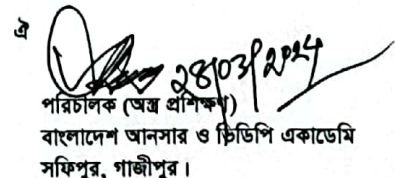 ঐ
২৪/০৩/২০২৪
পরিচালক (অস্ত্র প্রশিক্ষণ)
বাংলাদেশ আনসার ও ভিডিপি একাডেমি
সফিপুর, গাজীপুর।